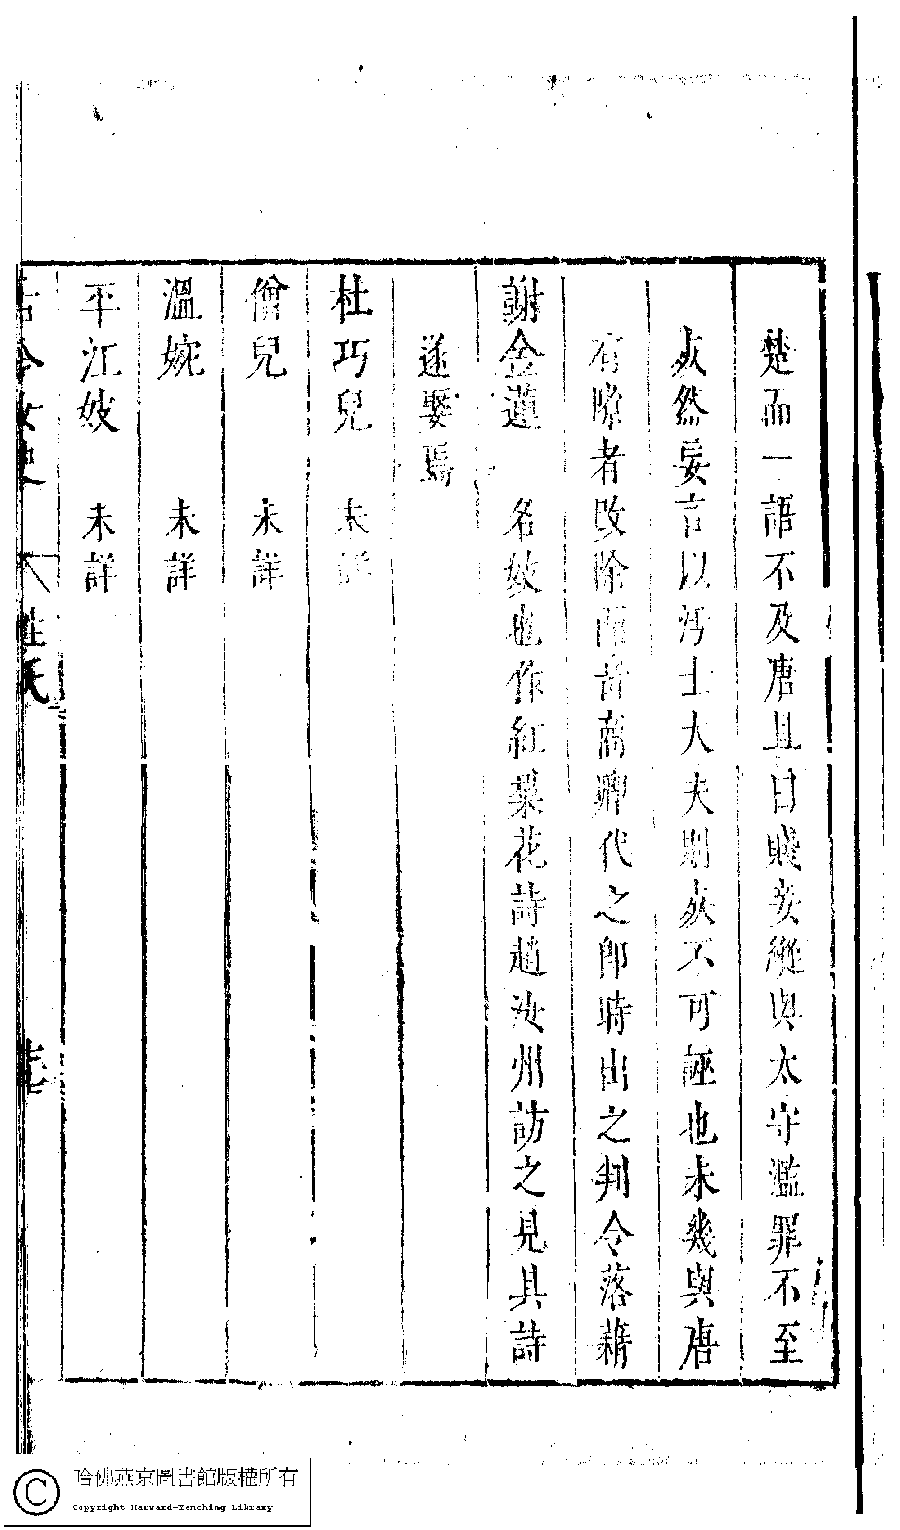 楚而一語不及唐且曰賤妾縱與太守濫罪不至
死然妄言以汚士大夫則死不可誣也未幾與唐
有隙者改除而岳商卿代之即時出之判令落籍
謝金蓮 名妓也作紅葉花詩趙汝州訪之見其詩
遂娶焉
杜巧兒 未詳
僧兒 未詳
溫婉 未詳
平江妓 未詳
古今女史 姓氏
哈佛燕京圖書館版權所有
Copyright Harvard-Yenching Library